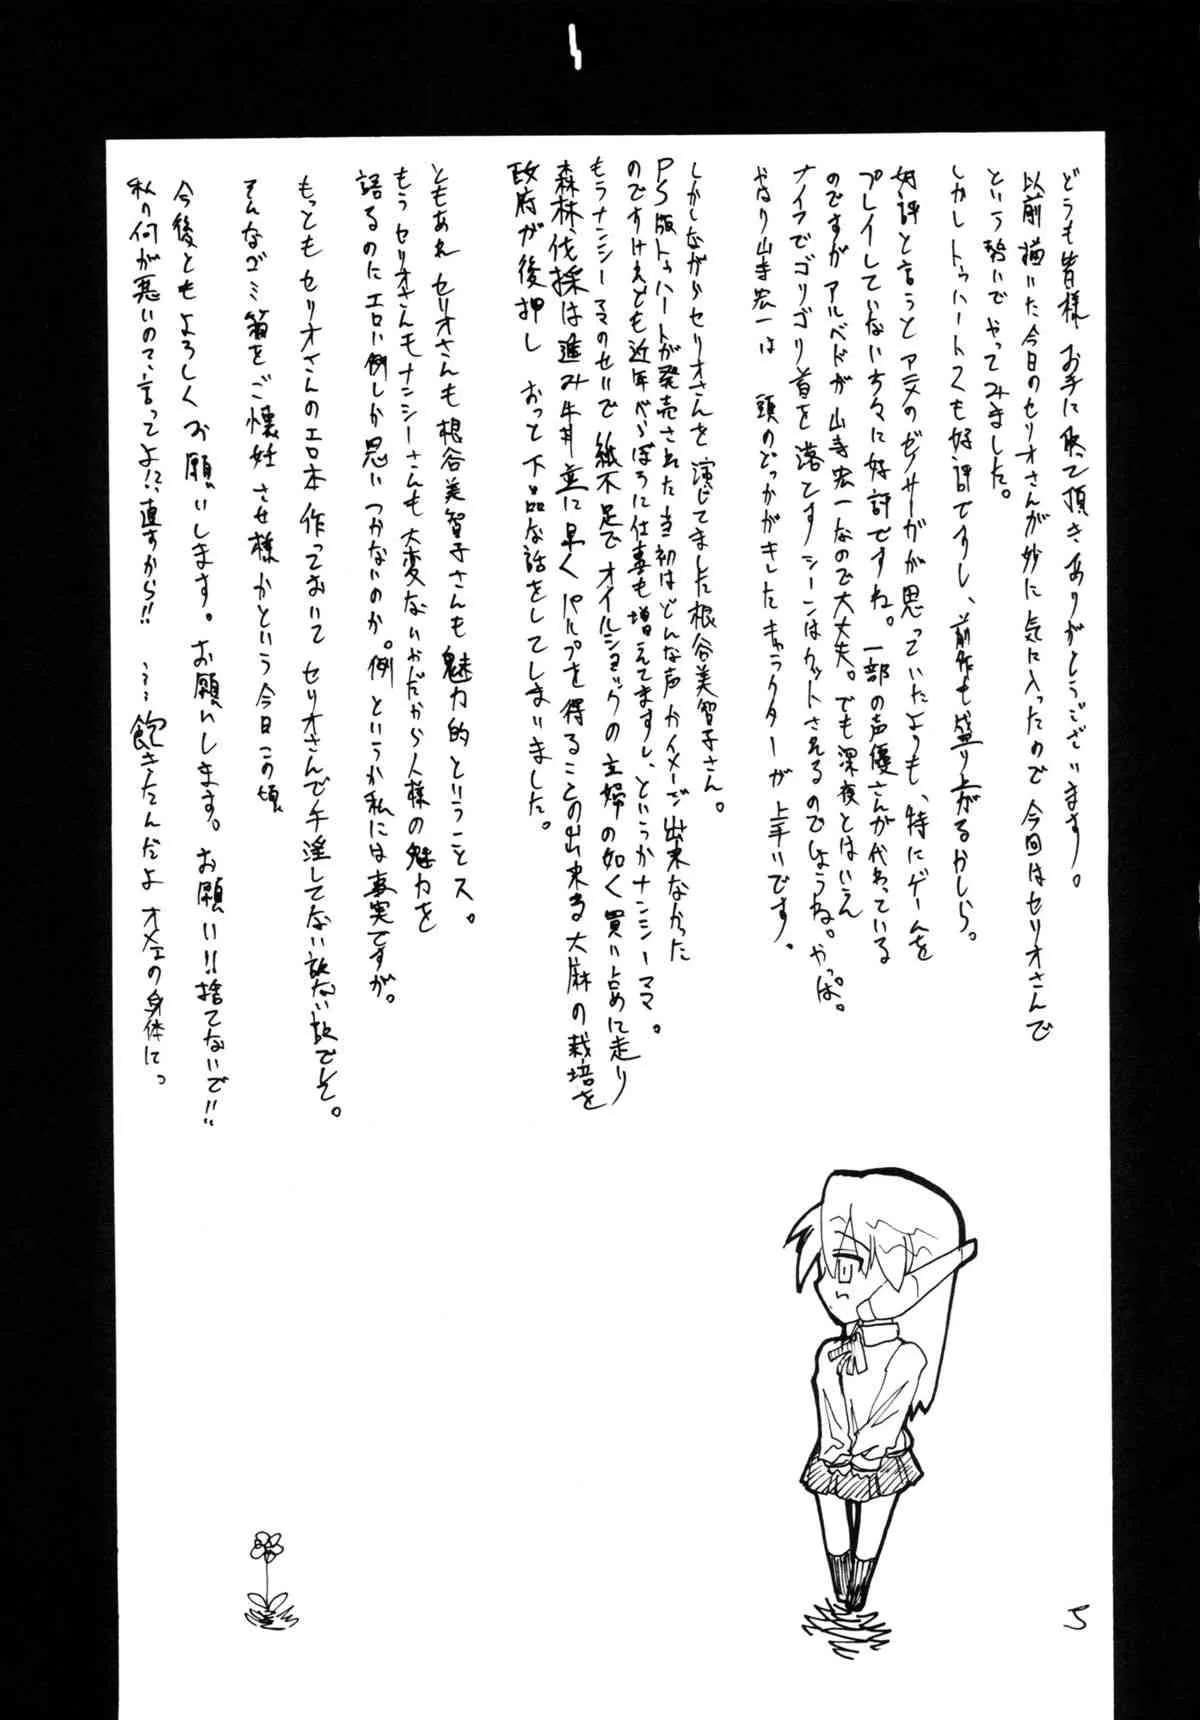 どうも皆様 お手に取って頂きありがとうございます。
以前描いた今日のセリオさんが妙に気に入ったので 今回はセリオさんで
という勢いでやってみました。
しかしトゥハート2も好評ですし、前作も盛り上がるかしら。
好評と言うと アニメのゼノサーガが思っていたよりも、特にゲームを
プレイしていない方々に好評ですね。一部の声優さんが代わっている
のですが アルベドが山寺宏一なので大丈夫。でも深夜とはいえ
ナイフでゴリゴリ首を落とすシーンはカットされるのでしょうね。やっぱ。
やはり山寺宏一は 頭のどっかがきしたキャラクターが上手いです。
しかしながらセリオさんを演じてました根谷美智子さん。
PS版トゥハートが発売された当初はどんな声かイメージ出来なかった
のですけれども近年べらぼうに仕事も増えてますし、というかナンシーママ。
もうナンシーママのせいで紙不足でオイルショックの主婦の如く買い占めに走り
森林伐採は進み牛丼並に早くパルプを得ることの出来る大麻の栽培を
政府が後押し おっと下品な話をしてしまいました。
ともあれ セリオさんも根谷美智子さんも魅力的ということス。
もうセリオさんもナンシーさんも大変ないかだから人様の魅力を
語るのにエロい例しか思いつかないのか。例というか私には事実ですが。
もっともセリオさんのエロ本作っておいて セリオさんで手淫してない訳ない訳でして。
そんなゴミ箱をご懐妊させ様かという今日この頃
今後ともよろしくお願いします。お願いします。お願い!!捨てないで!!
私の何が悪いのて、言ってよ!?、直すから!! ……飽きたんだよ オメェの身体にっ
5